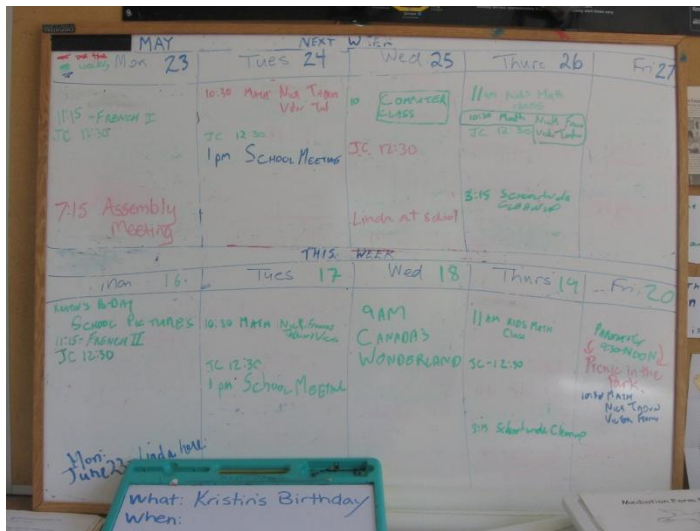 MAY
NEXT WEEK
Mon 23
Tues 24
Wed 25
Thurs 26
Fri 27
11:15 - FRENCH I
JC 12:30
7:15 Assembly
Meeting
10:30 MATH Nick
JC 12:30
1 pm SCHOOL MEETING
10 COMPUTER
CLASS
JC 12:30
Linda at school
11 am KIDS Math
CLASS
10:30 Math Nick
JC 12:30
3:15 Schoolwide
CLEANUP
THIS WEEK
Mon 16
Tues 17
Wed 18
Thurs 19
Fri 20
B-DAY
SCHOOL PICTURES
11:15 - FRENCH II
JC 12:30
10:30 MATH Nick
JC 12:30
1 pm School Meeting
9AM
CANADA'S
WONDERLAND
11 AM KIDS Math
Class
JC - 12:30
3:15 Schoolwide Cleanup
9:30-NOON
Picnic in the
Park
10:30 MATH
Nick
Mon.
June 23 - Linda here.
What: Kristin's Birthday
When: